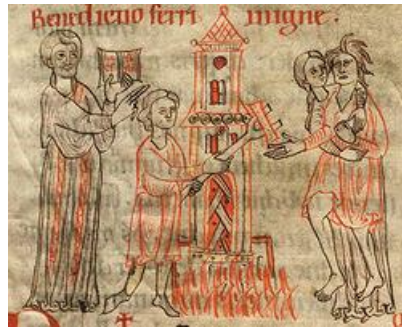 Benedictio ferri    inigne.